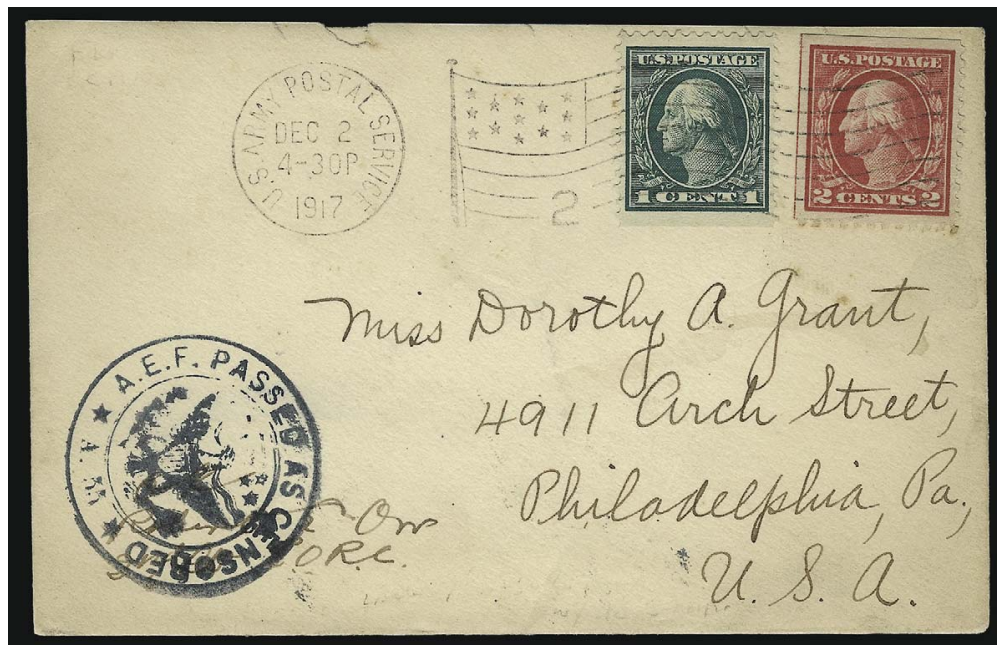 U.S. ARMY POSTAL SERVICE
DEC 2
4-30P
1917
2
U.S. POSTAGE
1 CENT 1
U.S. POSTAGE
2 CENTS 2
Miss Dorothy A. Grant,
4911 Arch Street,
Philadelphia, Pa.,
U. S. A.
A.E.F. PASSED AS CENSORED
O.R.C.